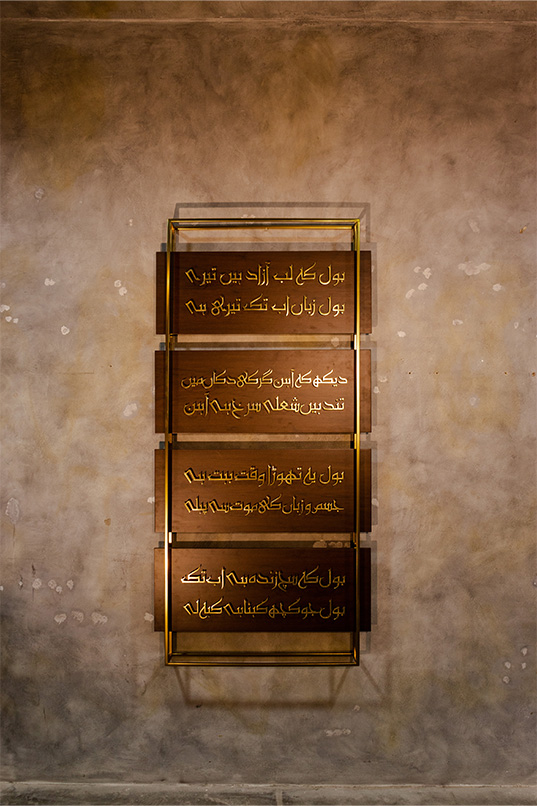 بول کہ لب آزاد ہیں تیرے
بول زباں اب تک تیری ہے
دیکھ کہ آہن گر کی دکاں میں
تند ہیں شعلے سرخ ہے آہن
بول یہ تھوڑا وقت بہت ہے
جسم و زباں کی موت سے پہلے
بول کہ سچ زندہ ہے اب تک
بول جو کچھ کہنا ہے کہہ لے